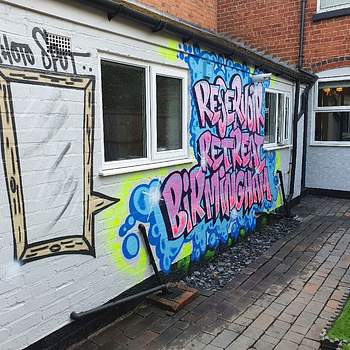 PHOTO SPOT
RESERVOIR
RETREAT
BIRMINGHAM